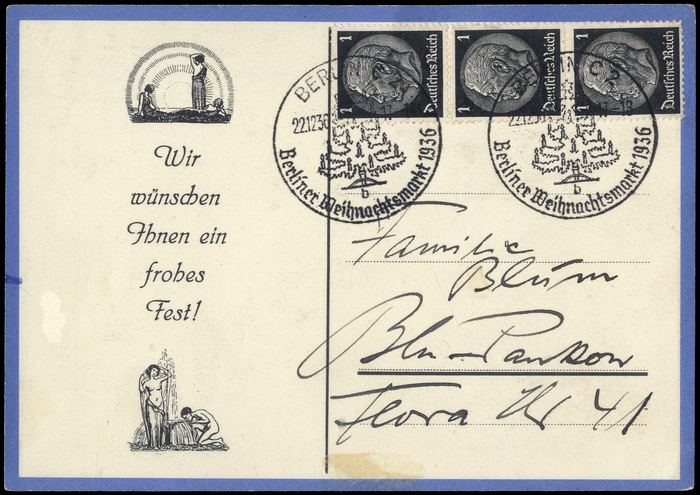 Wir
wünschen
Ihnen ein
frohes
Fest!
1 1 Deutsches Reich
1 1 Deutsches Reich
1 1 Deutsches Reich
BERLIN
22.12.36
Berliner Weihnachtsmarkt 1936
b
BERLIN C2
22.12.36 17-18
Berliner Weihnachtsmarkt 1936
b
Familie
Blum
Bln-Pankow
Flora Str 41